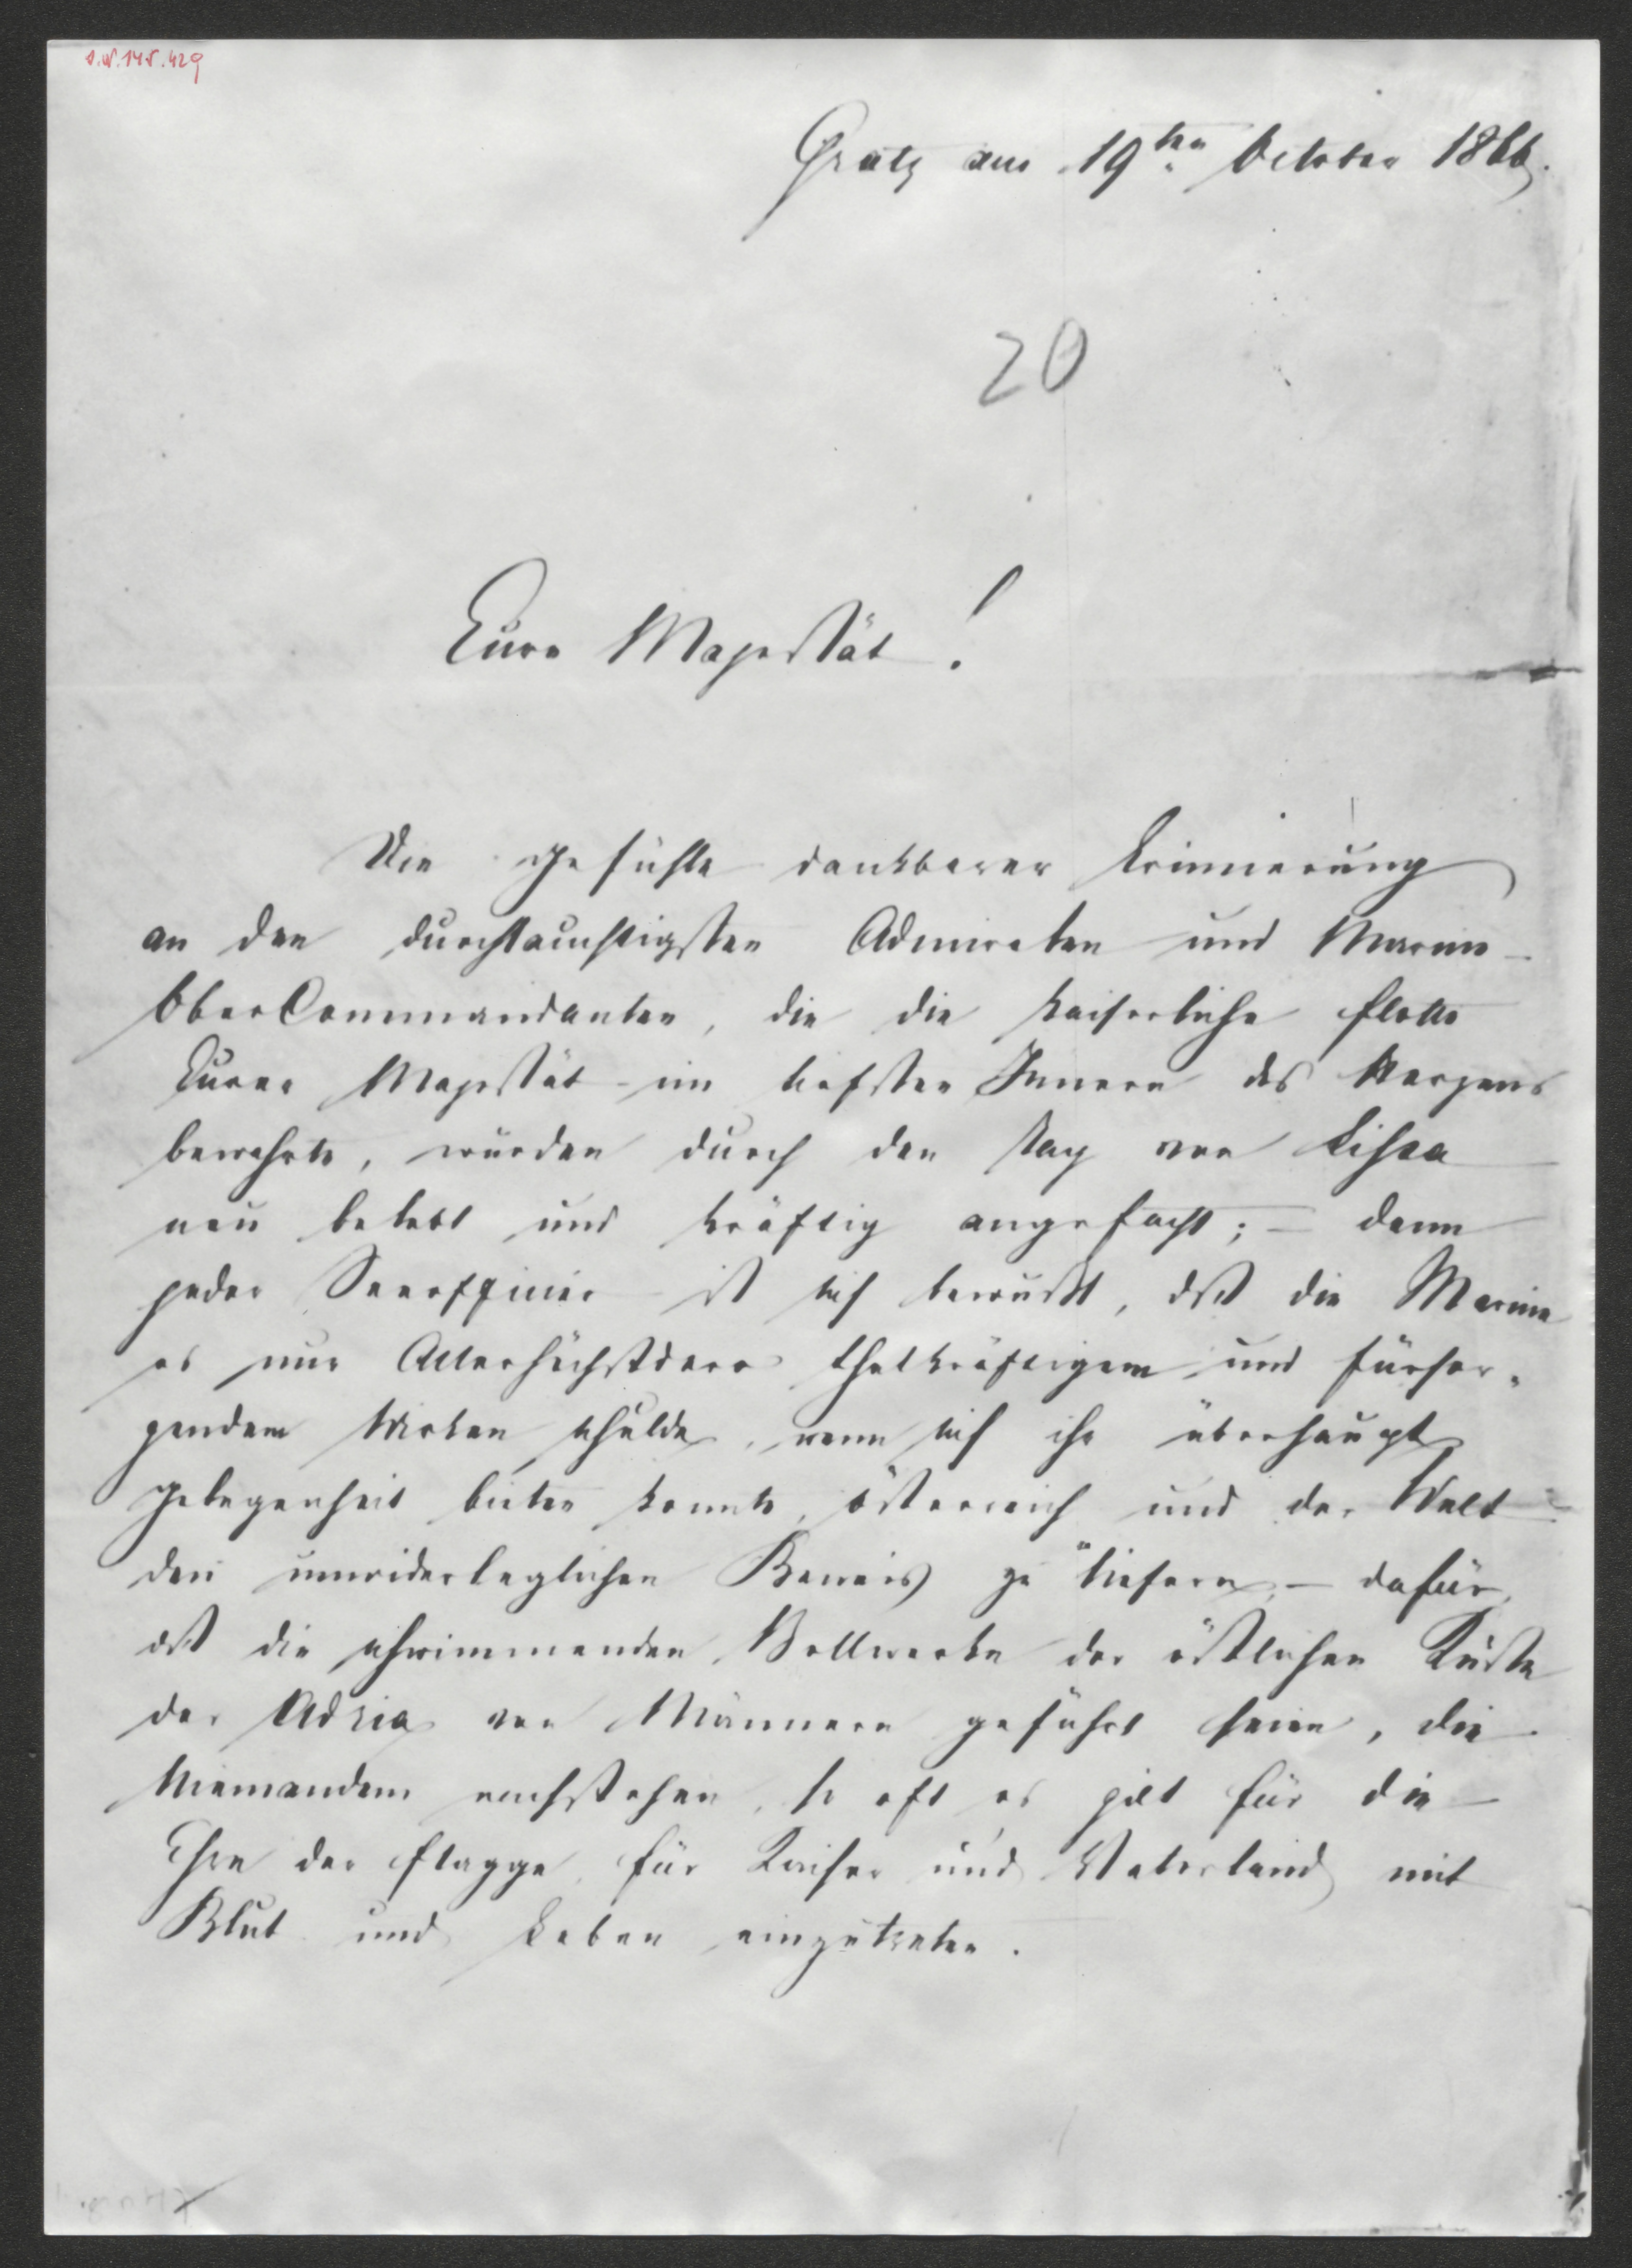 Gratz am 19ten October 1866.
20
Eure Majestät!
Die Gefühle dankbarer Erinnerung
an den durchlauchtigsten Admiralen und Marine-
OberCommandanten, die die kaiserliche Flotte
Eurer Majestät im tiefsten Innern des Herzens
bewahrte, wurden durch den Tag von Lissa
neu belebt und kräftig angefacht; – denn
jeder Seeoffizier ist sich bewußt, daß die Marine
es nur Allerhöchstdero thatkräftigem und fürsor-
gendem Wirken schulde, wenn sich ihr überhaupt
Gelegenheit bieten konnte, Österreich und der Welt
den unwiderleglichen Beweis zu liefern, – dafür,
daß die schwimmenden Bollwerke der östlichen Küste
der Adria von Männern geführt seien, die
Niemandem nachstehen, so oft es gilt für die
Ehre der Flagge, für Kaiser und Vaterland mit
Blut und Leben einzutreten.